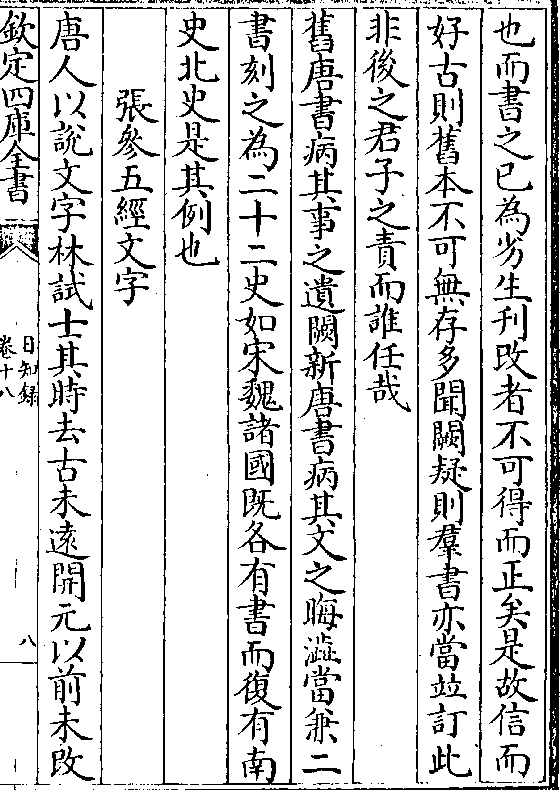 也而書之已為劣生刊改者不可得而正矣是故信而
好古則舊本不可無存多聞闕疑則羣書亦當竝訂此
非後之君子之責而誰任哉
舊唐書病其事之遺闕新唐書病其文之晦澁當兼二
書刻之為二十二史如宋魏諸國既各有書而復有南
史北史是其例也
張參五經文字
唐人以說文字林試士其時去古未遠開元以前未改
欽定四庫全書
日知録
卷十八
八